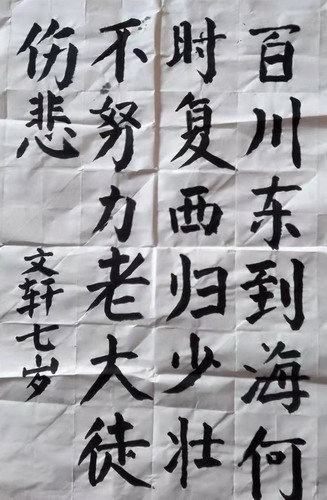 百川东到海何
时复西归少壮
不努力老大徒
伤悲
文轩七岁